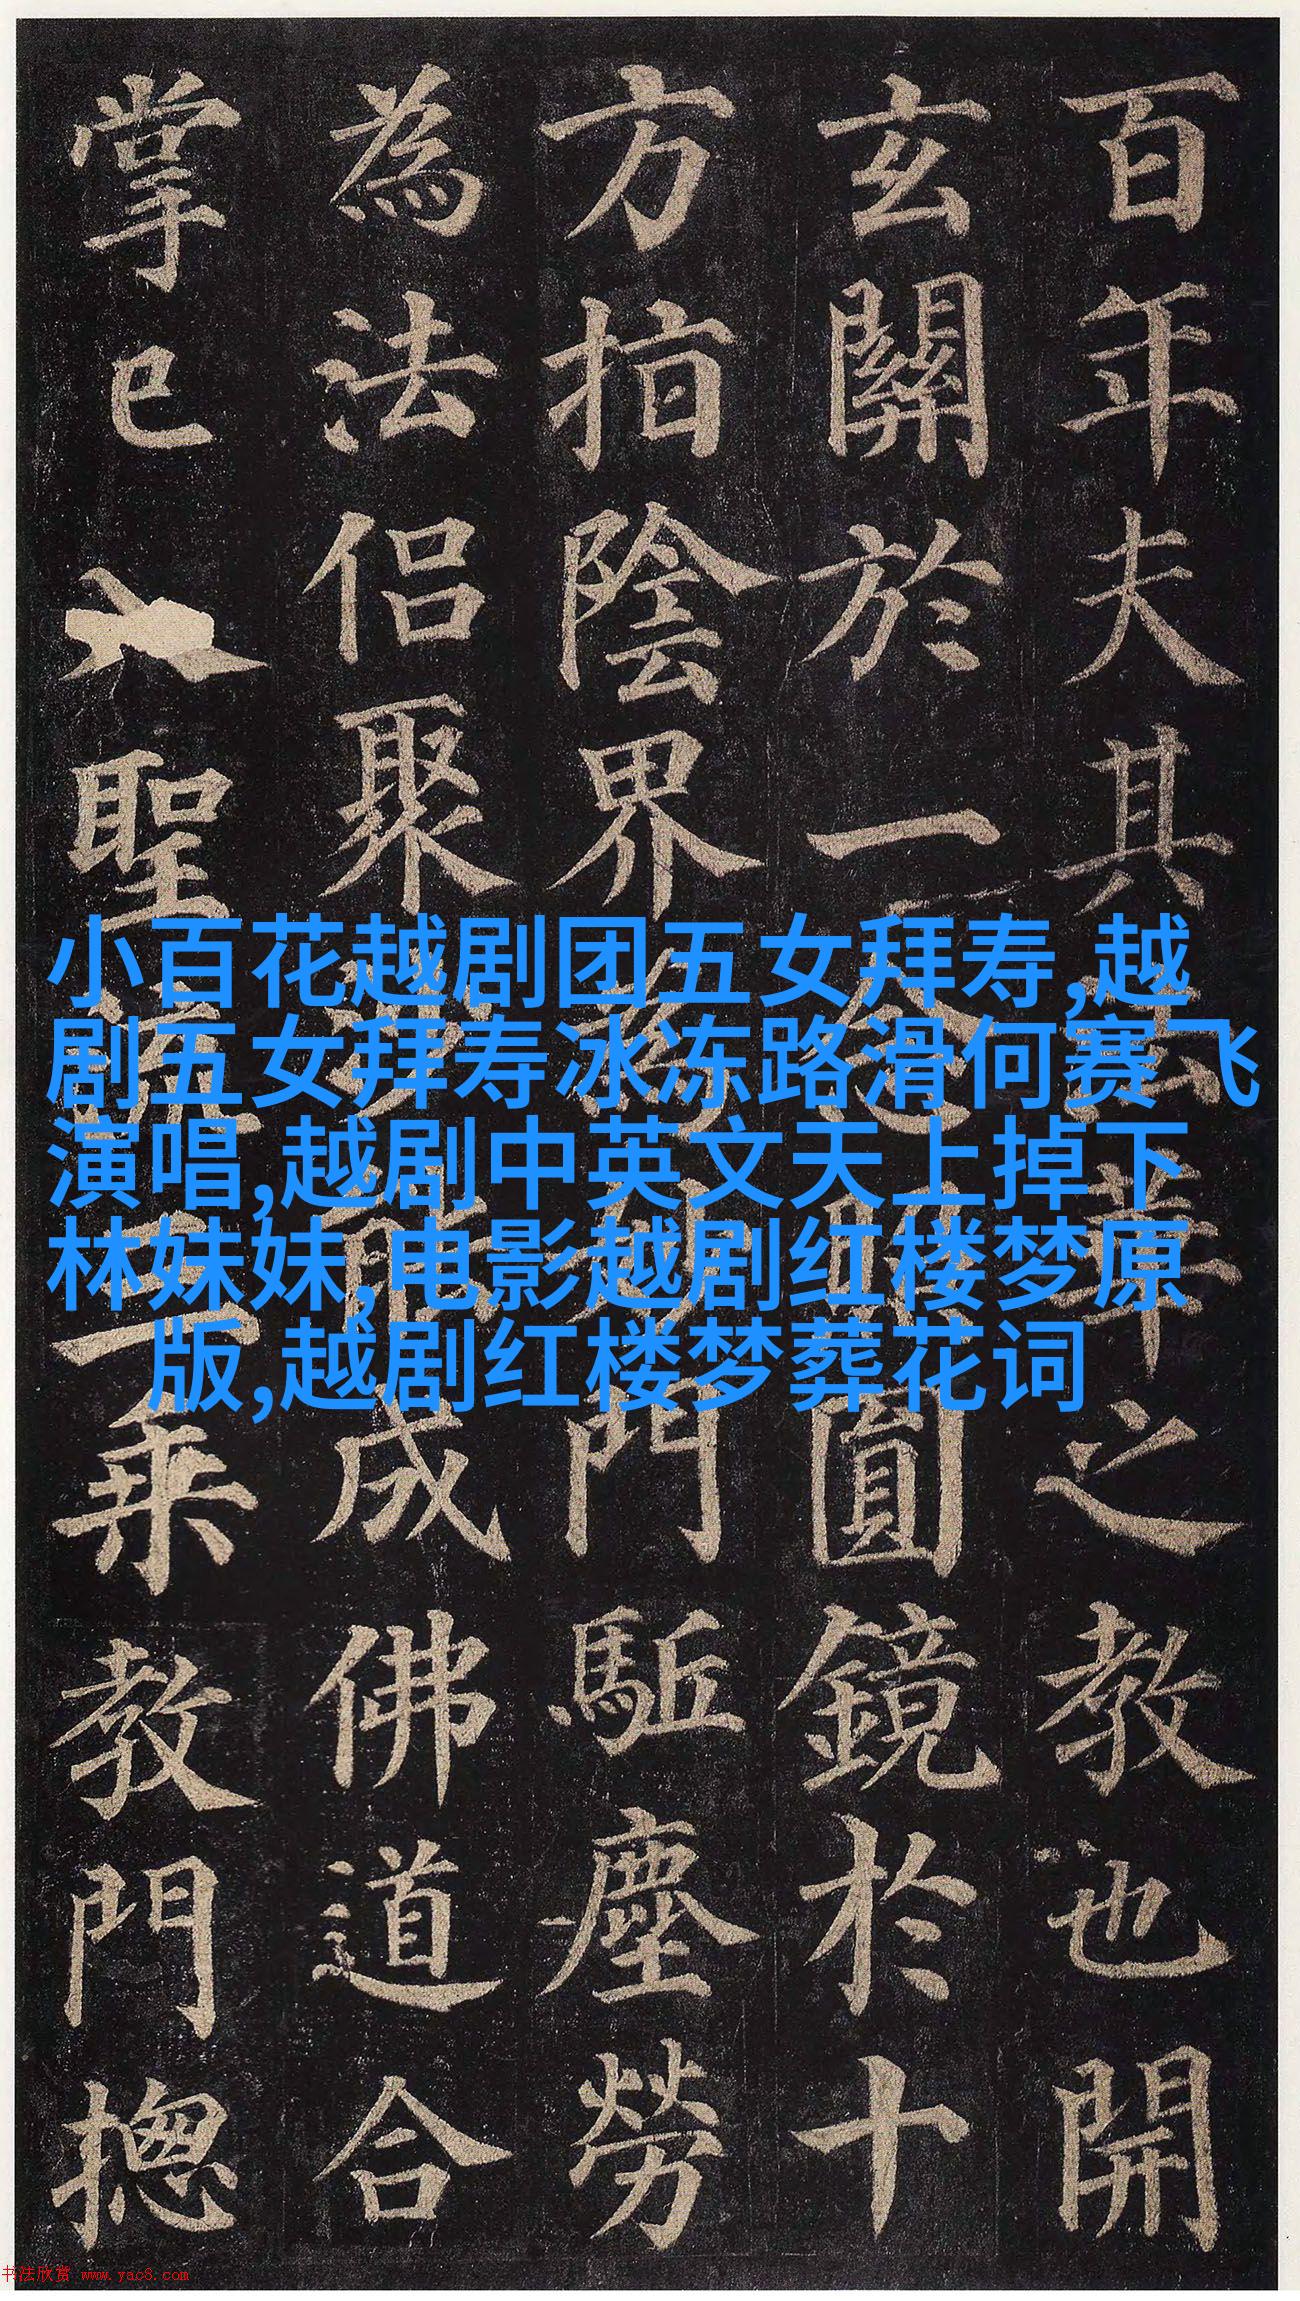 百年夫其華之教也開
玄關於一念圓鏡於十
方指陰界門駈塵勞
為法侣聚能成佛道合
掌已聖三乘教門摠
小百花越剧团五女拜寿,越
剧五女拜寿冰冻路滑何赛飞
演唱,越剧中英文天上掉下
林妹妹,电影越剧红楼梦原
版,越剧红楼梦葬花词
书法欣赏 www.yac8.com